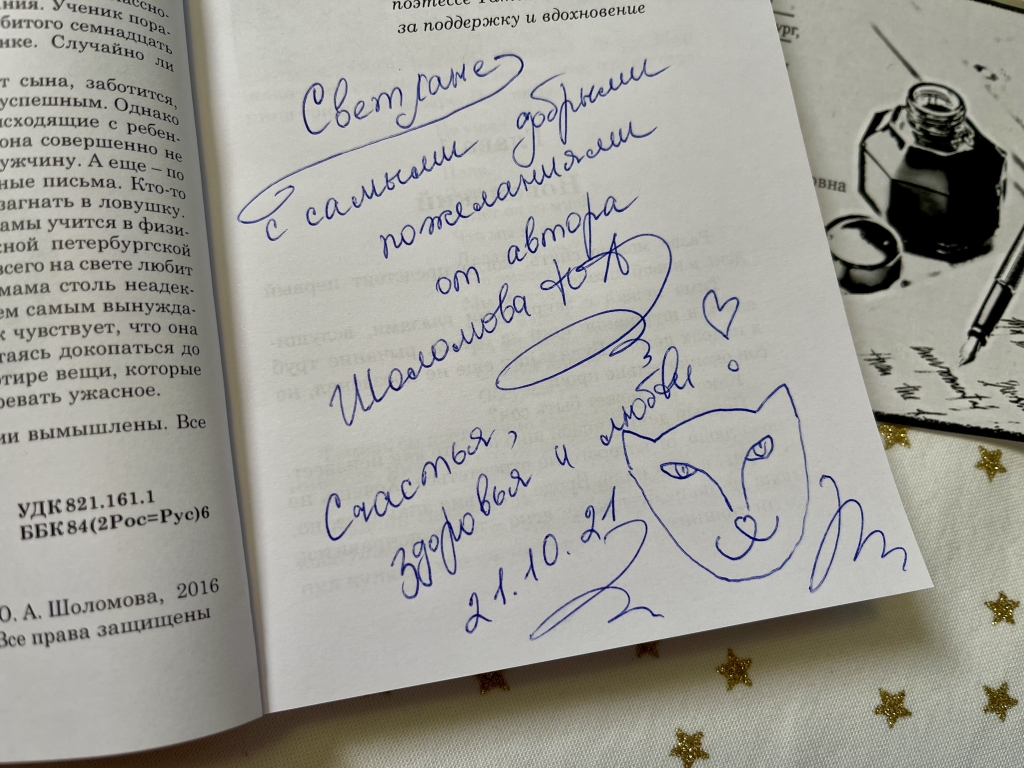 ния. Ученик пора-
битого семнадцать
нке. Случайно ли
т сына, заботится,
успешным. Однако
исходящие с ребен-
она совершенно не
ужчину. А еще – по
ные письма. Кто-то
загнать в ловушку.
амы учится в физи-
ной петербургской
всего на свете любит
мама столь неадек-
ем самым вынужда-
к чувствует, что она
таясь докопаться до
ртире вещи, которые
ревать ужасное.
ии вымышлены. Все
УДК 821.161.1
ББК 84(2Рос=Рус)6
Ю. А. Шоломова, 2016
Все права защищены
поэтессе
за поддержку и вдохновение
Светлане
с самыми добрыми
пожеланиями
от автора
Шоломова Ю А
Счастья,
здоровья и любви.
21.10.21
овна